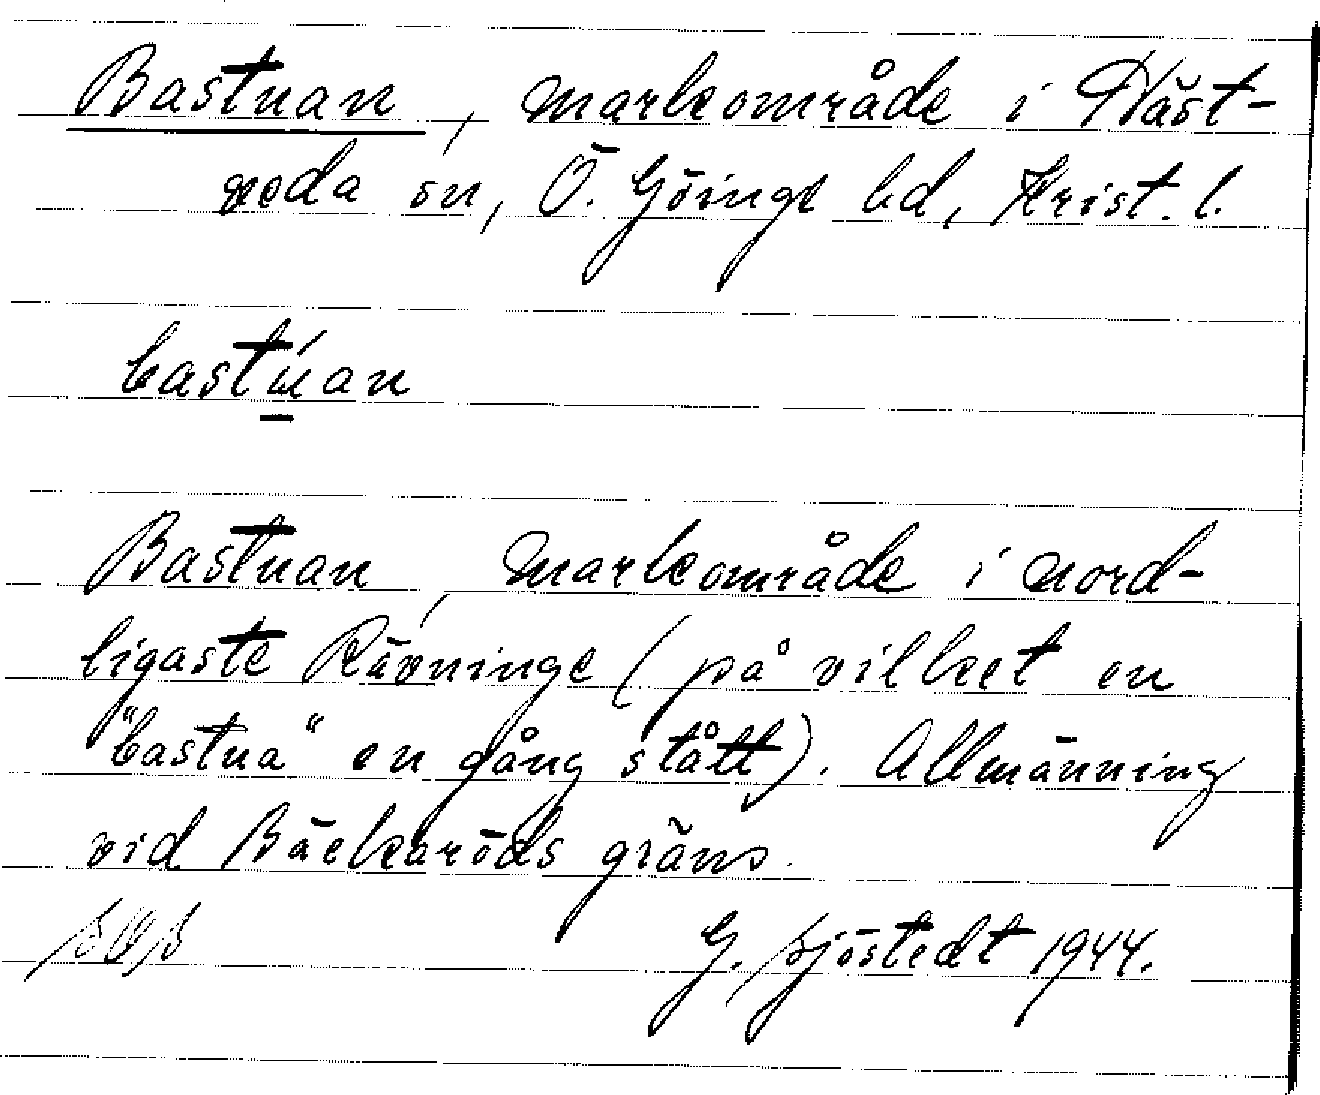 Bastuan, markområde i Häst-
veda sn, Ö. Göinge hd, Krist. l.
bastúan
Bastuan, markområde i nord-
ligaste Rävninge (på vilket en
"bastua" en gång stått). Allmänning
vid Bäckaröds gräns.
G. Sjöstedt 1944.